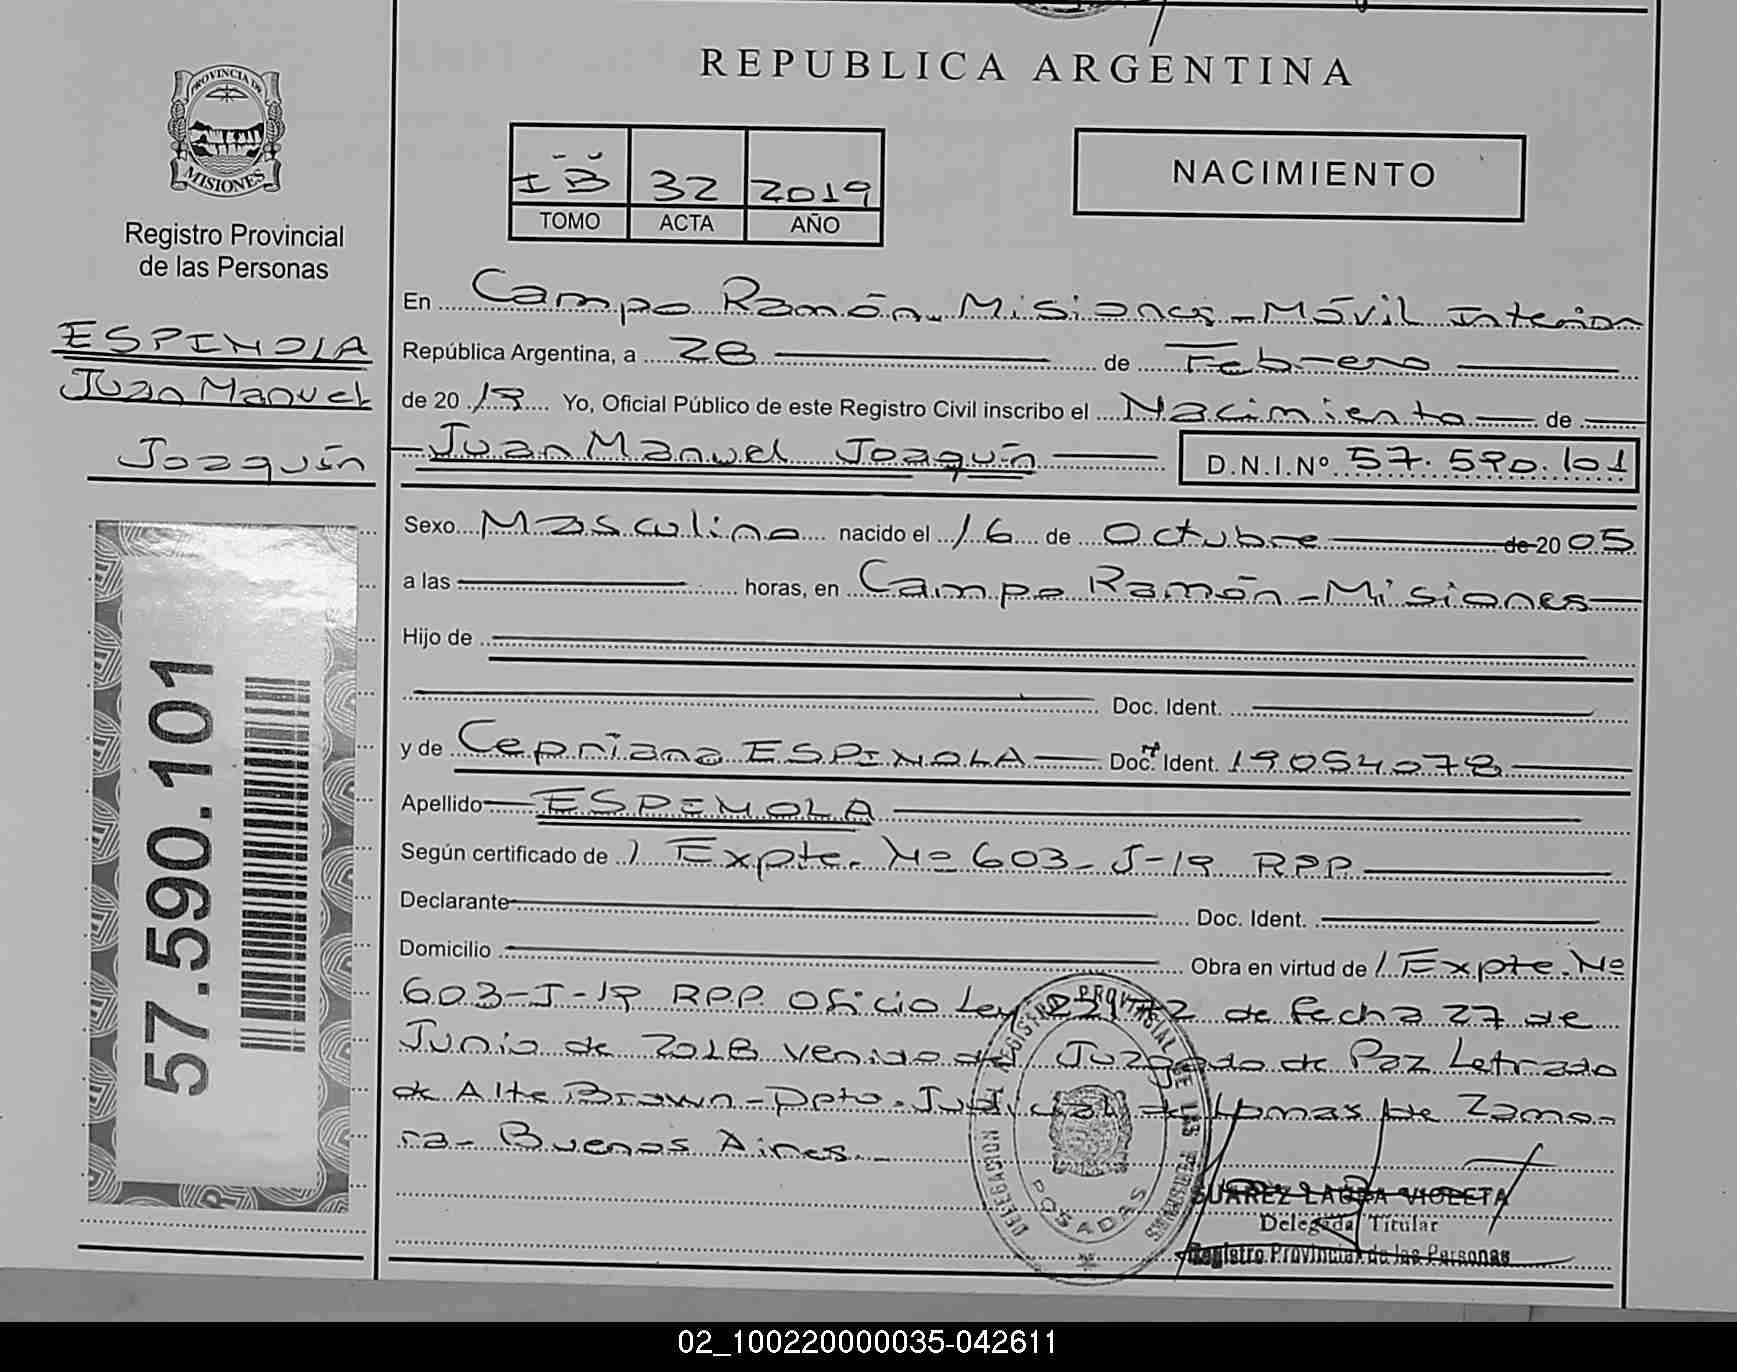 REPUBLICA ARGENTINA
PROVINCIA DE
MISIONES
Registro Provincial
de las Personas
ESPINOLA
Juan Manuel
Joaquín
57.590.101
I B 32 2019
TOMO ACTA AÑO
NACIMIENTO
En Campo Ramón - Misiones - Móvil Interior
República Argentina, a 28 de Febrero
de 20 19 Yo, Oficial Público de este Registro Civil inscribo el Nacimiento de
Juan Manuel Joaquín D.N.I.Nº 57.590.101
Sexo Masculino nacido el 16 de Octubre de 20 05
a las horas, en Campo Ramón - Misiones
Hijo de
Doc. Ident.
y de Cepriana ESPINOLA Doc. Ident. 19054078
Apellido ESPINOLA
Según certificado de / Expte. Nº 603-J-19 RPP
Declarante Doc. Ident.
Domicilio Obra en virtud de / Expte. Nº
603-J-19 RPP. Oficio Ley 22172 de fecha 27 de
Junio de 2018 venido del Juzgado de Paz Letrado
de Alte Brown - Dpto. Judicial de Lomas de Zamo-
ra - Buenos Aires.-
REGISTRO PROVINCIAL DE LAS PERSONAS
DELEGACION
POSADAS
SUAREZ LAURA VIOLETA
Delegada Titular
Registro Provincial de las Personas
02_100220000035-042611